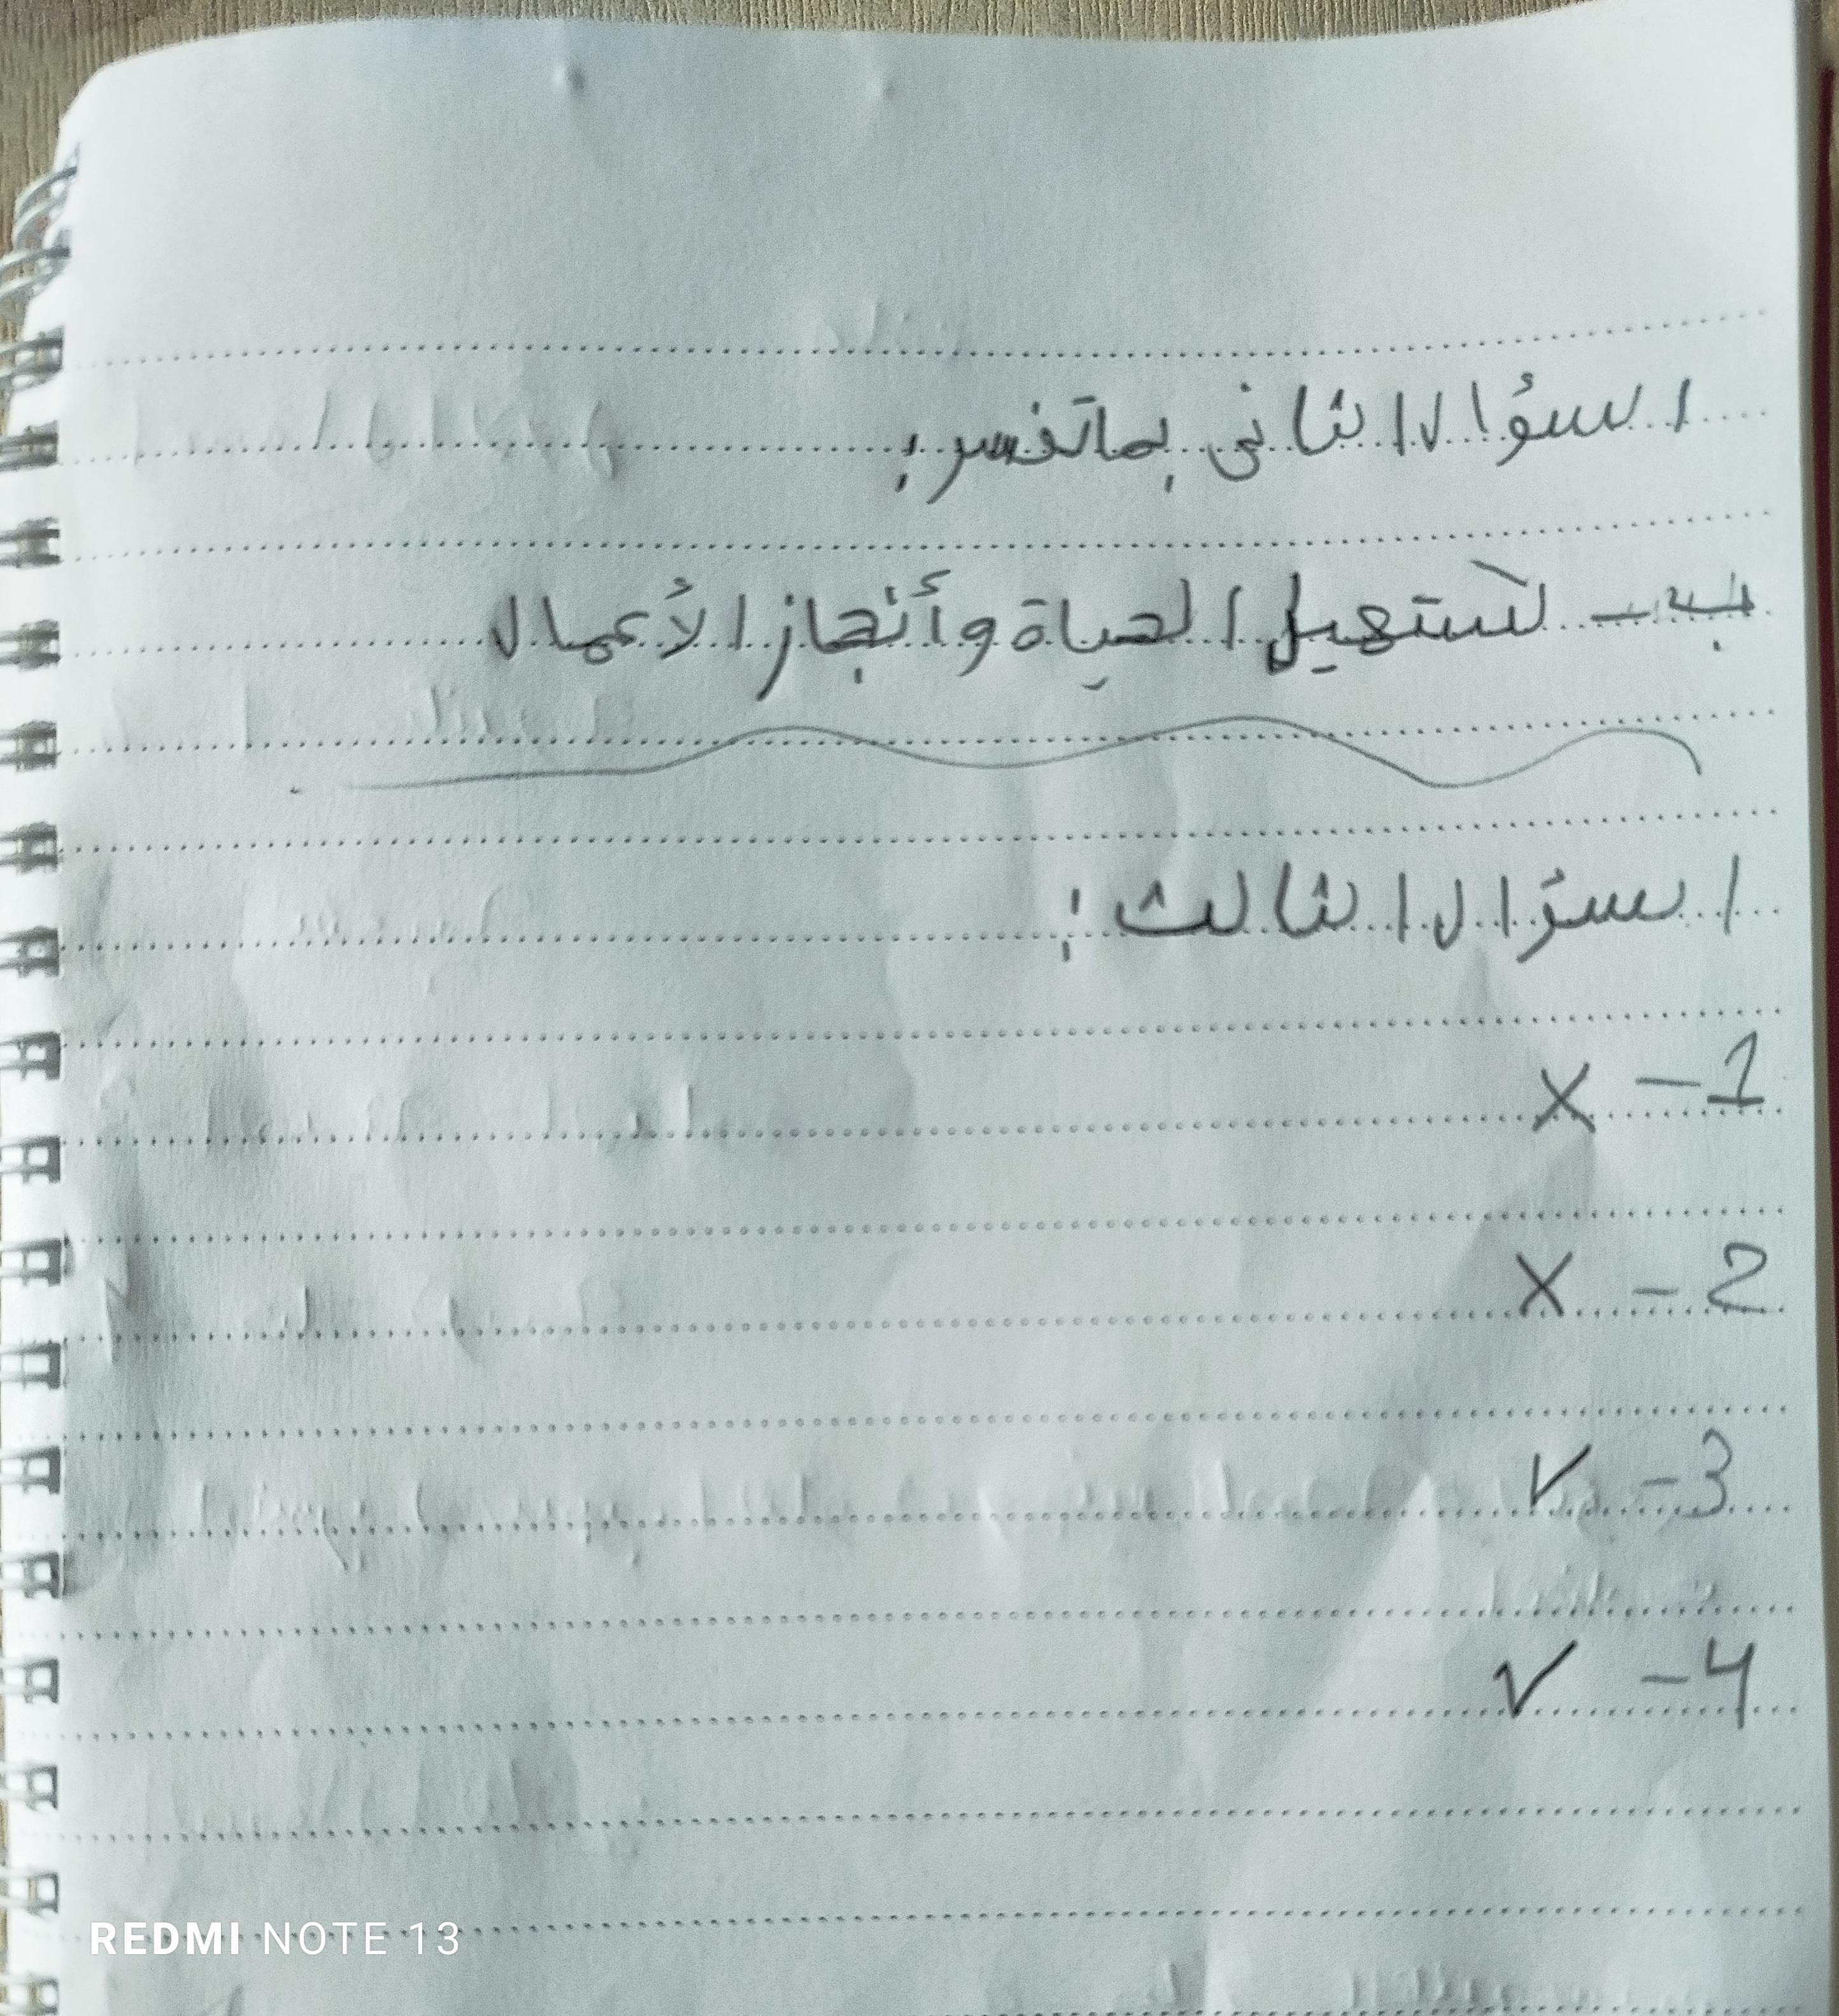 السؤال الثاني بماتفسر:
ب - لتستهيل الحياة وأنجاز الأعمال
السؤال الثالث:
1 - X
2 - X
3 - ✓
4 - ✓
REDMI NOTE 13